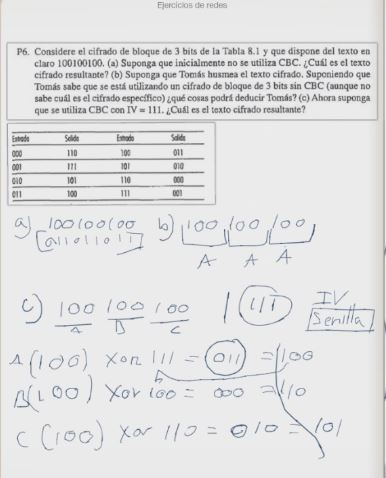 Ejercicios de redes
P6. Considere el cifrado de bloque de 3 bits de la Tabla 8.1 y que dispone del texto en
claro 100100100. (a) Suponga que inicialmente no se utiliza CBC. ¿Cuál es el texto
cifrado resultante? (b) Suponga que Tomás husmea el texto cifrado. Suponiendo que
Tomás sabe que se está utilizando un cifrado de bloque de 3 bits sin CBC (aunque no
sabe cuál es el cifrado específico) ¿qué cosas podrá deducir Tomás? (c) Ahora suponga
que se utiliza CBC con IV = 111. ¿Cuál es el texto cifrado resultante?
Entrada Salida Entrada Salida
000 110 100 011
001 111 101 010
010 101 110 000
011 100 111 001
a) 100100100 b) 100 100 100
011011011 A A A
c) 100 100 100 111 IV
A B C Semilla
A (100) Xor 111 = 011 = 100
B(100) Xor 100 = 000 = 110
C (100) Xor 110 = 010 = 101